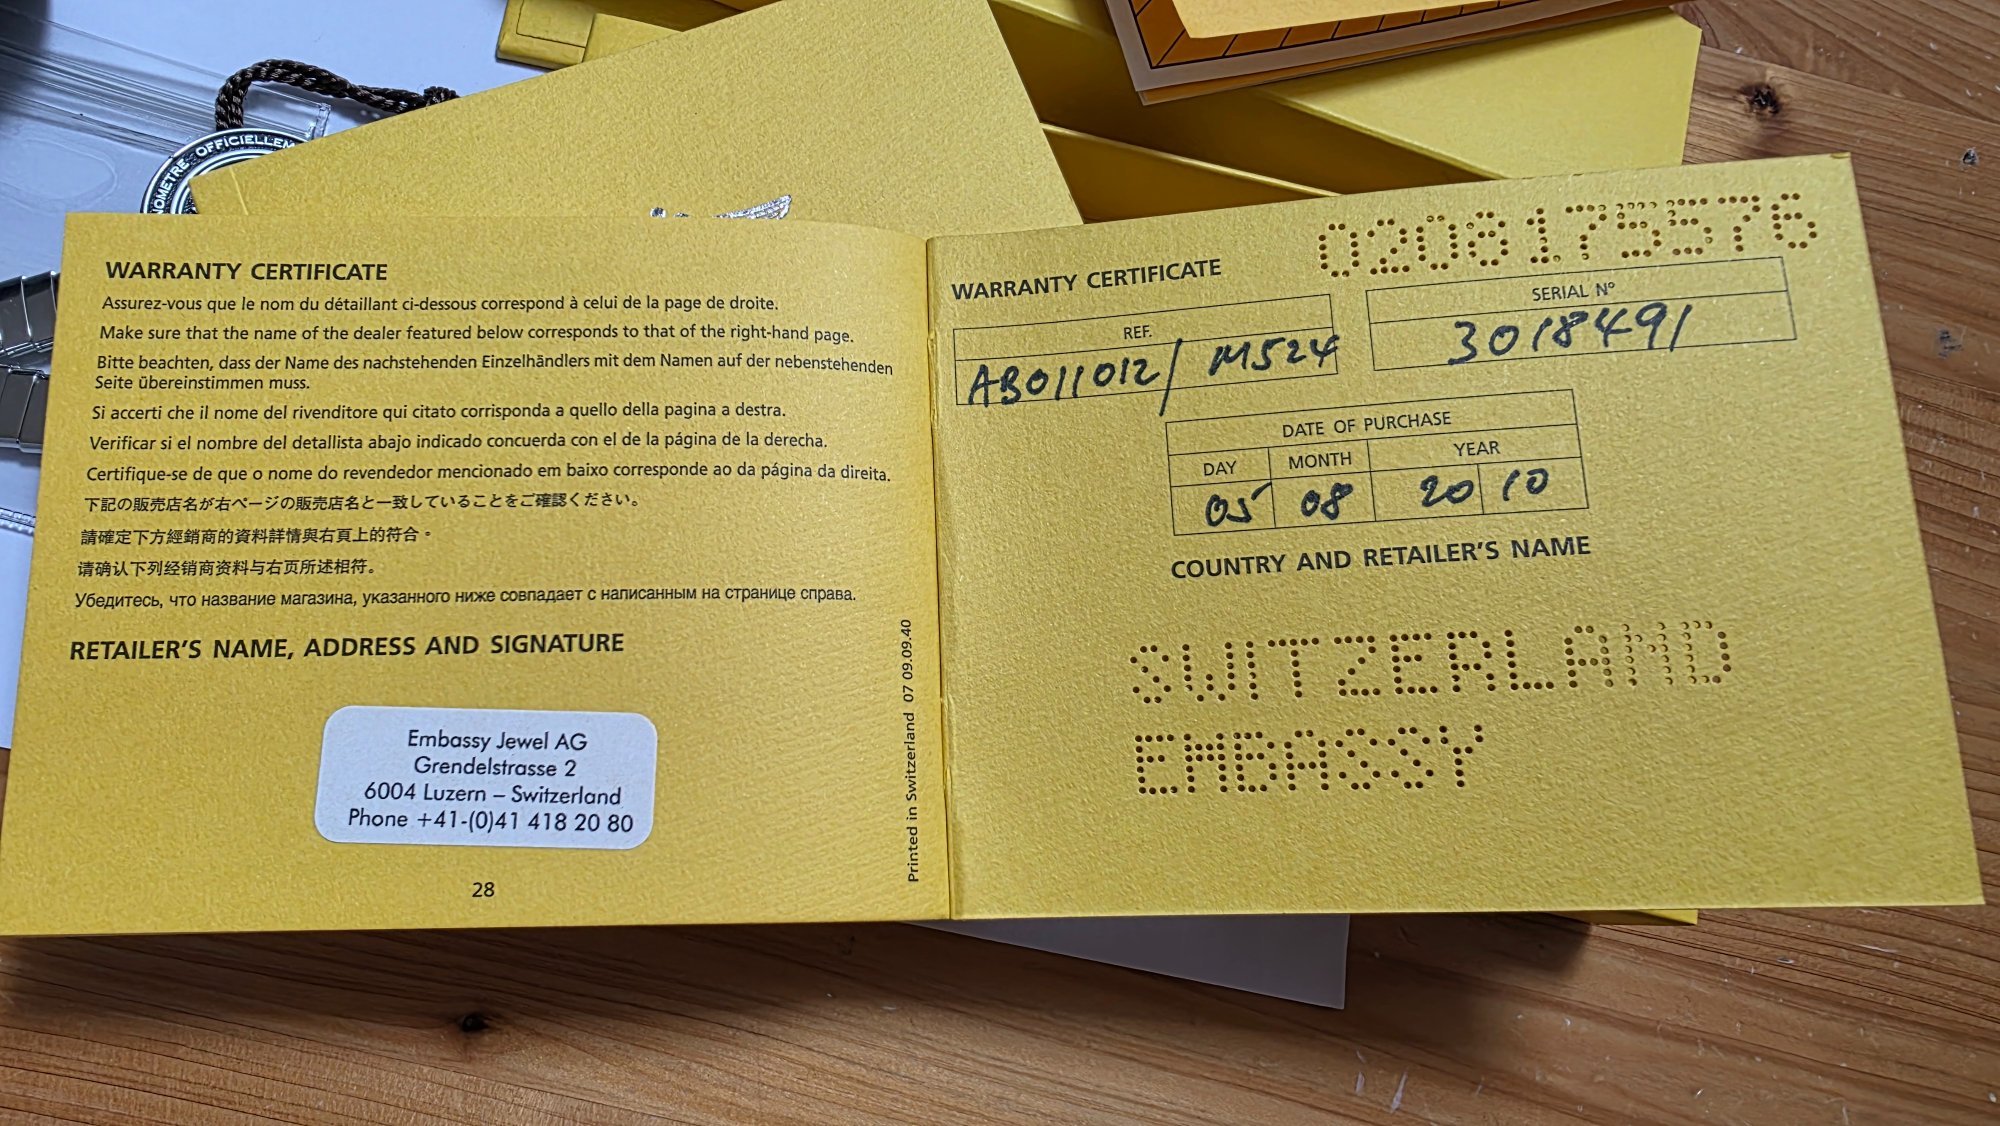 NOMETRE OFFICIELLEM
WARRANTY CERTIFICATE
Assurez-vous que le nom du détaillant ci-dessous correspond à celui de la page de droite.
Make sure that the name of the dealer featured below corresponds to that of the right-hand page.
Bitte beachten, dass der Name des nachstehenden Einzelhändlers mit dem Namen auf der nebenstehenden
Seite übereinstimmen muss.
Si accerti che il nome del rivenditore qui citato corrisponda a quello della pagina a destra.
Verificar si el nombre del detallista abajo indicado concuerda con el de la página de la derecha.
Certifique-se de que o nome do revendedor mencionado em baixo corresponde ao da página da direita.
下記の販売店名が右ページの販売店名と一致していることをご確認ください。
請確定下方經銷商的資料詳情與右頁上的符合。
请确认下列经销商资料与右页所述相符。
Убедитесь, что название магазина, указанного ниже совпадает с написанным на странице справа.
RETAILER'S NAME, ADDRESS AND SIGNATURE
Embassy Jewel AG
Grendelstrasse 2
6004 Luzern – Switzerland
Phone +41-(0)41 418 20 80
28
Printed in Switzerland 07 09.09.40
0208175576
WARRANTY CERTIFICATE
REF.
AB011012/ M524
SERIAL Nº
3018491
DATE OF PURCHASE
DAY MONTH YEAR
05 08 20 10
COUNTRY AND RETAILER'S NAME
SWITZERLAND
EMBASSY